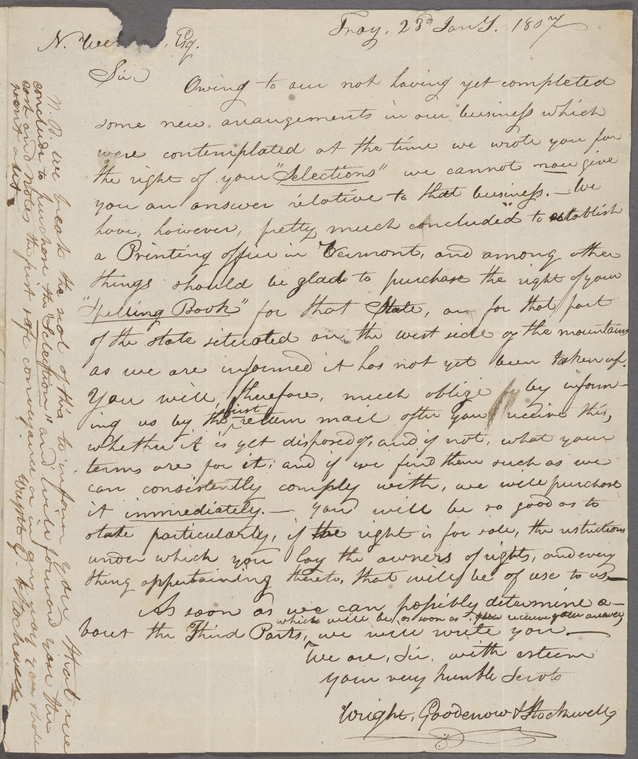 Troy, 23d Jany. 1807
N. We Esq.
Sir
Owing to our not having yet completed
some new arrangements in our business which
were contemplated at the time we wrote you for
the right of your "Selections" we cannot now give
you an answer relative to that business. — We
have, however, pretty much concluded to establish
a Printing office in Vermont, and among other
things should be glad to purchase the right of your
"Spelling Book" for that State, or for that part
of the state situated on the west side of the mountains
as we are informed it has not yet been taken up.
You will, therefore, much oblige by inform-
ing us by the first return mail after you receive this,
whether it is yet disposed of, and if not, what your
terms are for it; and if we find them such as we
can consistently comply with, we will purchase
it immediately. — You will be so good as to
state particularly, if the right is for sale, the restrictions
under which you lay the owners of rights, and every
thing appertaining thereto, that will be of use to us —
As soon as we can possibly determine a-
bout the Third Part, which will be as soon as receive your answer
we will write you —
We are, Sir, with esteem
your very humble Servts
Wright, Goodenow & Stockwell
N.B. We break the seal of this to inform you that we
conclude to purchase the "Selections" and will forward you the
and Notes the first safe conveyance
Wright G. & Stockwell